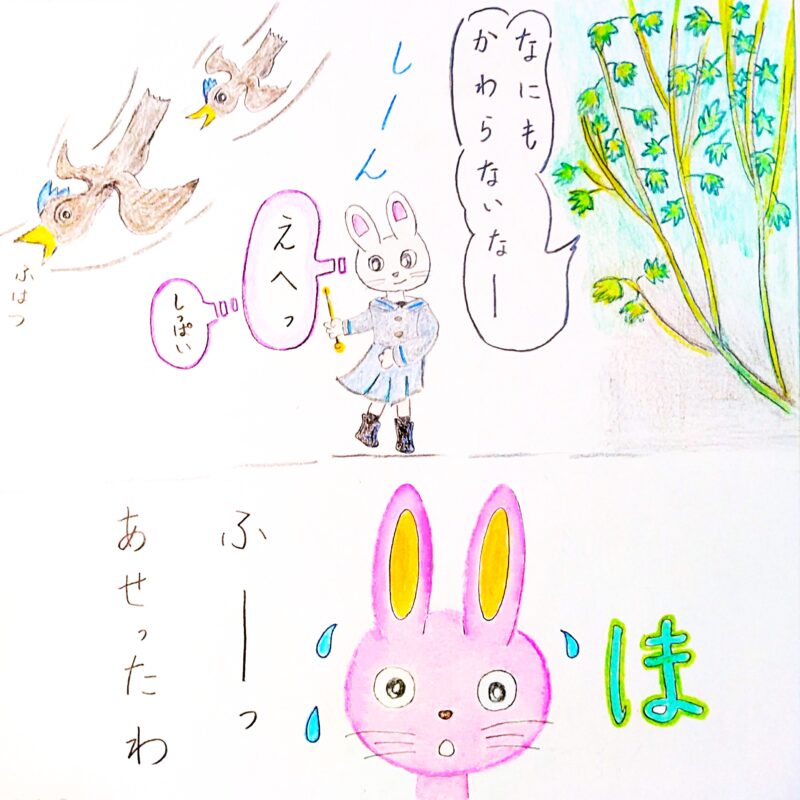 なにも
かわらないなー
しーん
えへっ
しっぱい
ふはつ
ほ
ふーっ
あせったわ